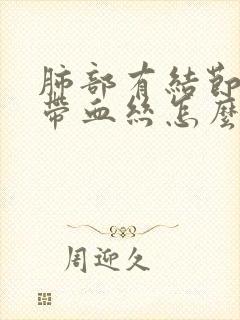 肺部有結節
帶血絲怎麼
周迎久